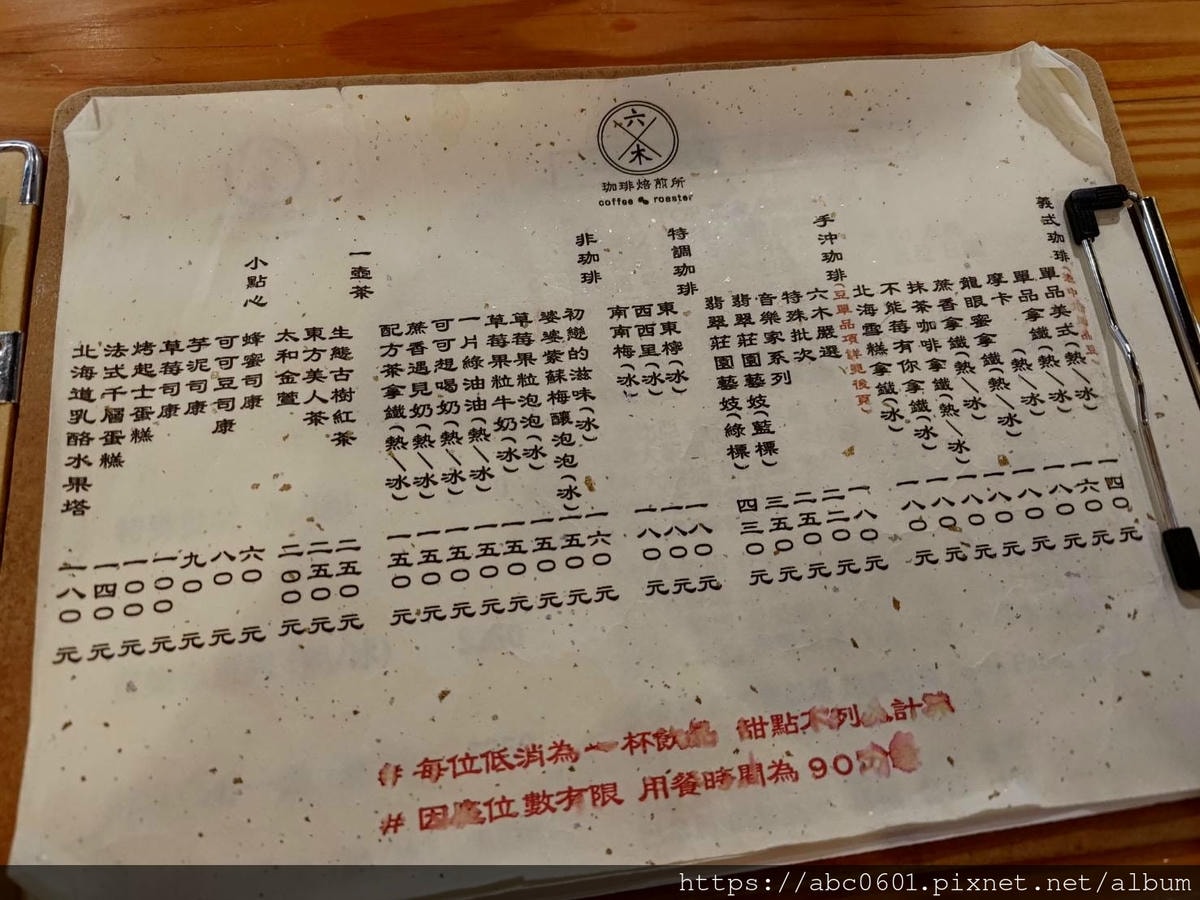 六木
珈琲焙煎所
coffee roaster
義式珈琲
單品美式(熱/冰) 一四〇元
單品拿鐵(熱/冰) 一六〇元
摩卡(熱/冰) 一八〇元
龍眼蜜拿鐵(熱/冰) 一八〇元
蔗香拿鐵(熱/冰) 一八〇元
抹茶咖啡拿鐵(熱/冰) 一八〇元
不能莓有你拿鐵(冰) 一八〇元
北海雪糕拿鐵(冰) 一八〇元
手沖珈琲(豆單品項詳見後頁)
六木嚴選 一八〇元
特殊批次 二二〇元
音樂家系列 二五〇元
翡翠莊園藝妓(藍標) 三五〇元
翡翠莊園藝妓(綠標) 四三〇元
特調珈琲
東東檸(冰) 一八〇元
西西里(冰) 一八〇元
南南梅(冰) 一八〇元
非珈琲
初戀的滋味(冰) 一六〇元
婆婆紫蘇梅釀泡泡(冰) 一五〇元
草莓果粒泡泡(冰) 一五〇元
草莓果粒牛奶(冰) 一五〇元
一片綠油油(熱/冰) 一五〇元
可可想喝奶(熱/冰) 一五〇元
蔗香遇見奶(熱/冰) 一五〇元
配方茶拿鐵(熱/冰) 一五〇元
一壺茶
生態古樹紅茶 二五〇元
東方美人茶 二五〇元
太和金萱 二〇〇元
小點心
蜂蜜司康 六〇元
可可豆司康 八〇元
芋泥司康 九〇元
草莓司康 一〇〇元
烤起士蛋糕 一〇〇元
法式千層蛋糕 一四〇元
北海道乳酪水果塔 一八〇元
# 每位低消為一杯飲品 甜點不列入計算
# 因座位數有限 用餐時間為90分
https://abc0601.pixnet.net/album